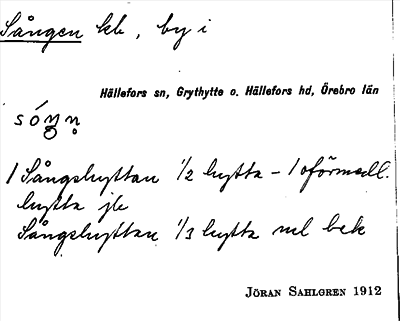 Sången kb, by i
Hällefors sn, Grythytte o. Hällefors hd, Örebro län
1 Sångshyttan 1/2 hytta - 1 oförmedl.
hytta jb
Sångshyttan 1/3 hytta ml bek
JÖRAN SAHLGREN 1912